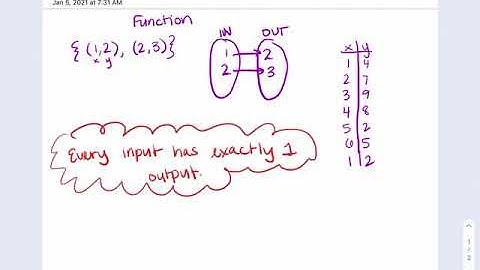 Jan 5, 2021 at 7:31 AM
Function
{(1,2), (2,3)}
x y
IN OUT
1 2
2 3
x y
1 4
2 7
3 9
4 8
5 2
6 5
1 2
Every input has exactly 1
output.
1 / 2